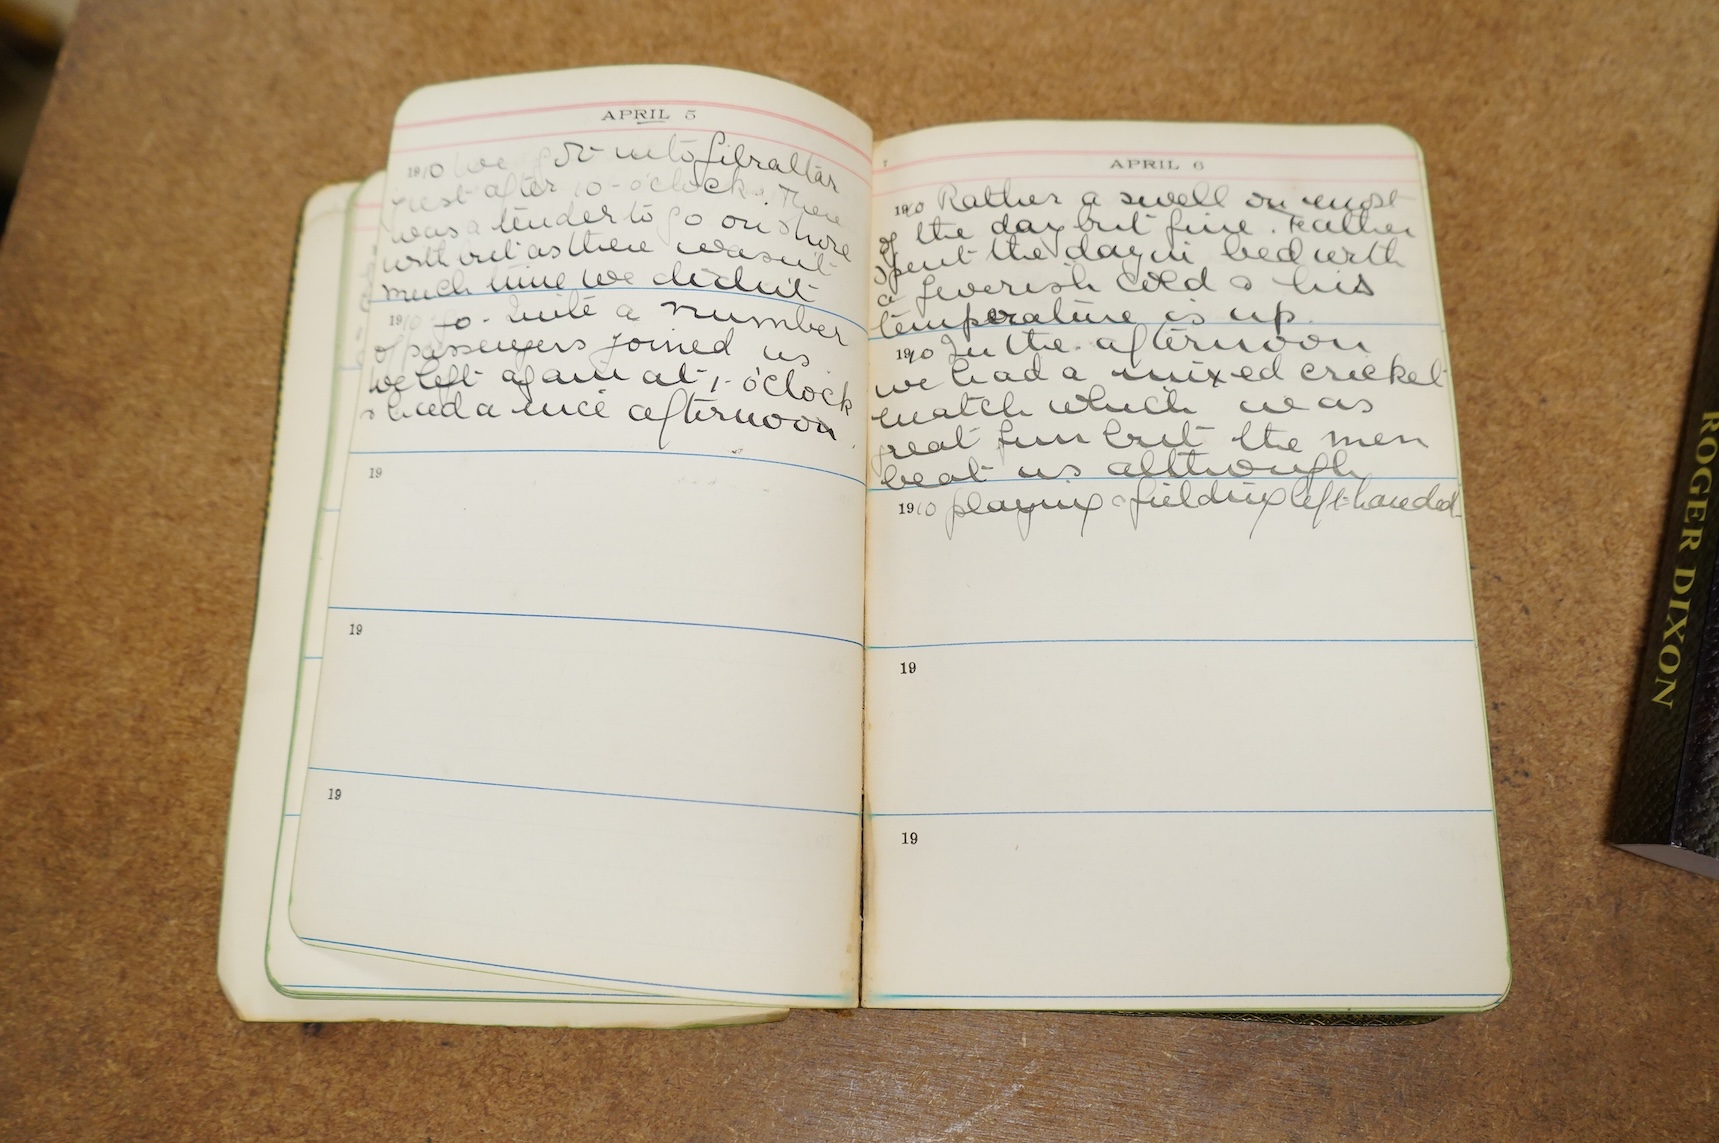 APRIL 5
1910 We got into Gibraltar
just after 10-o'clock. There
was a tender to go on shore
with but as there wasn't
much time we didn't
1910 go. Quite a number
of passengers joined us
we left again at 1-o'clock
& had a nice afternoon.
19
19
19
APRIL 6
1910 Rather a swell on most
of the day but fine. Father
spent the day in bed with
a feverish cold & his
temperature is up.
1910 In the afternoon
we had a mixed cricket
match which was
great fun but the men
beat us although
1910 playing & fielding left-handed
19
19
ROGER DIXON